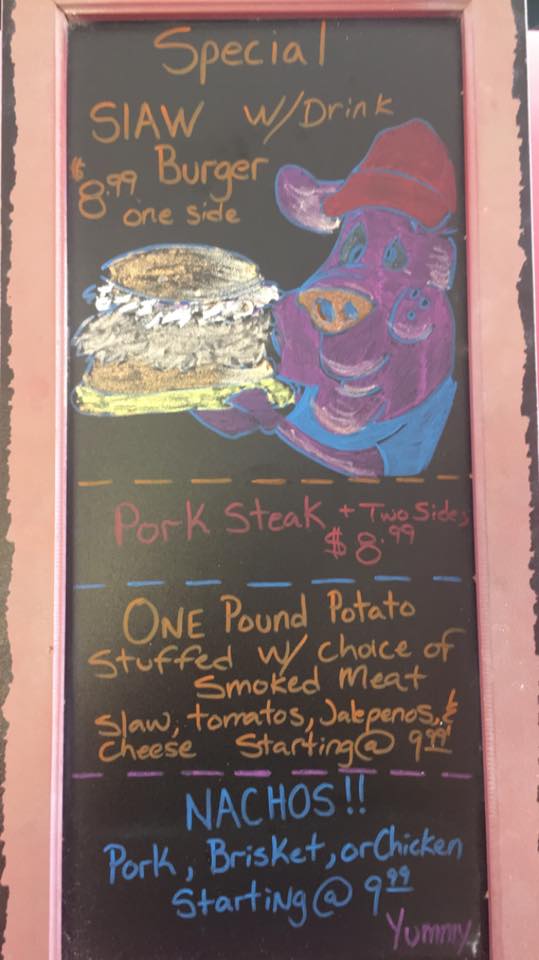 Special
SlAW w/Drink
$8.99 Burger
one side
Pork Steak + Two Sides
$8.99
ONE Pound Potato
Stuffed w/ choice of
Smoked Meat
Slaw, tomatos, Jalepenos, &
Cheese Starting @ 9.99
NACHOS!!
Pork, Brisket, or Chicken
Starting @ 9.99
Yummy